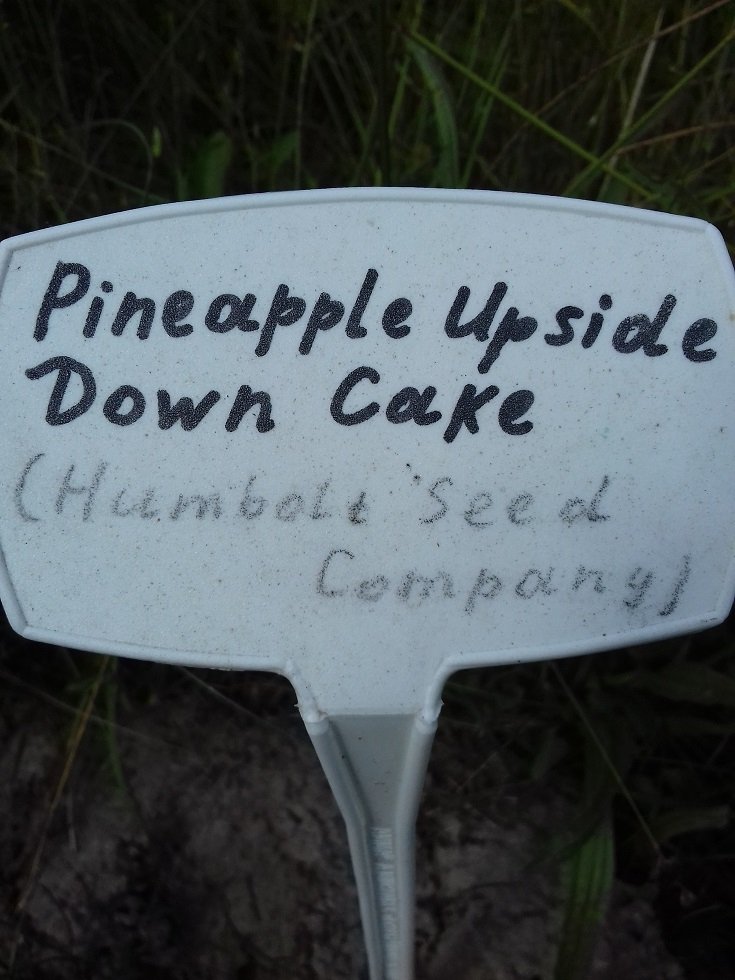 Pineapple Upside
Down Cake
(Humbolt Seed
Company)